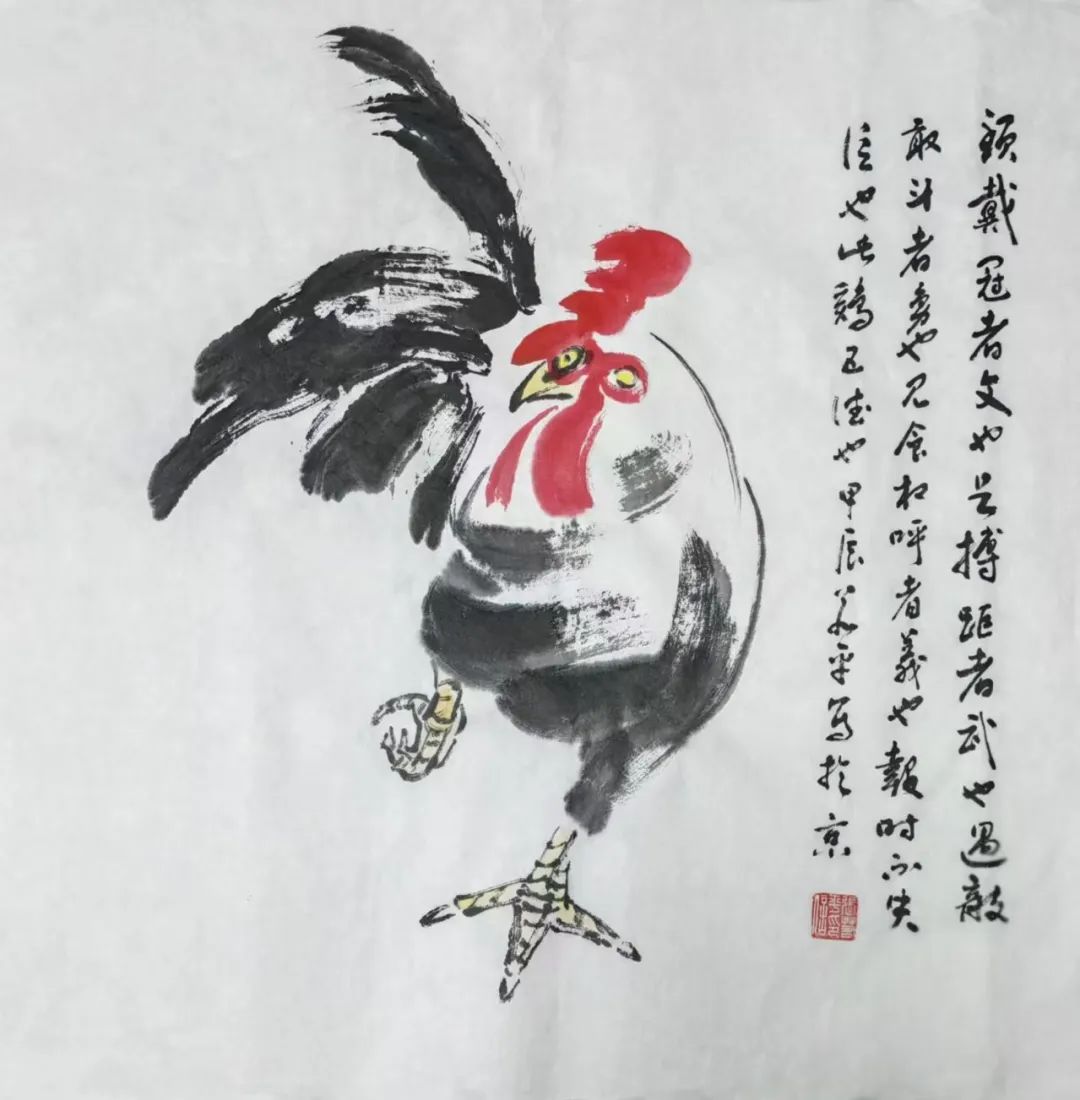 頭戴冠者文也足搏距者武也遇敵
敢斗者勇也见食相呼者義也報时不失
信也此鷄五德也甲辰平写於京